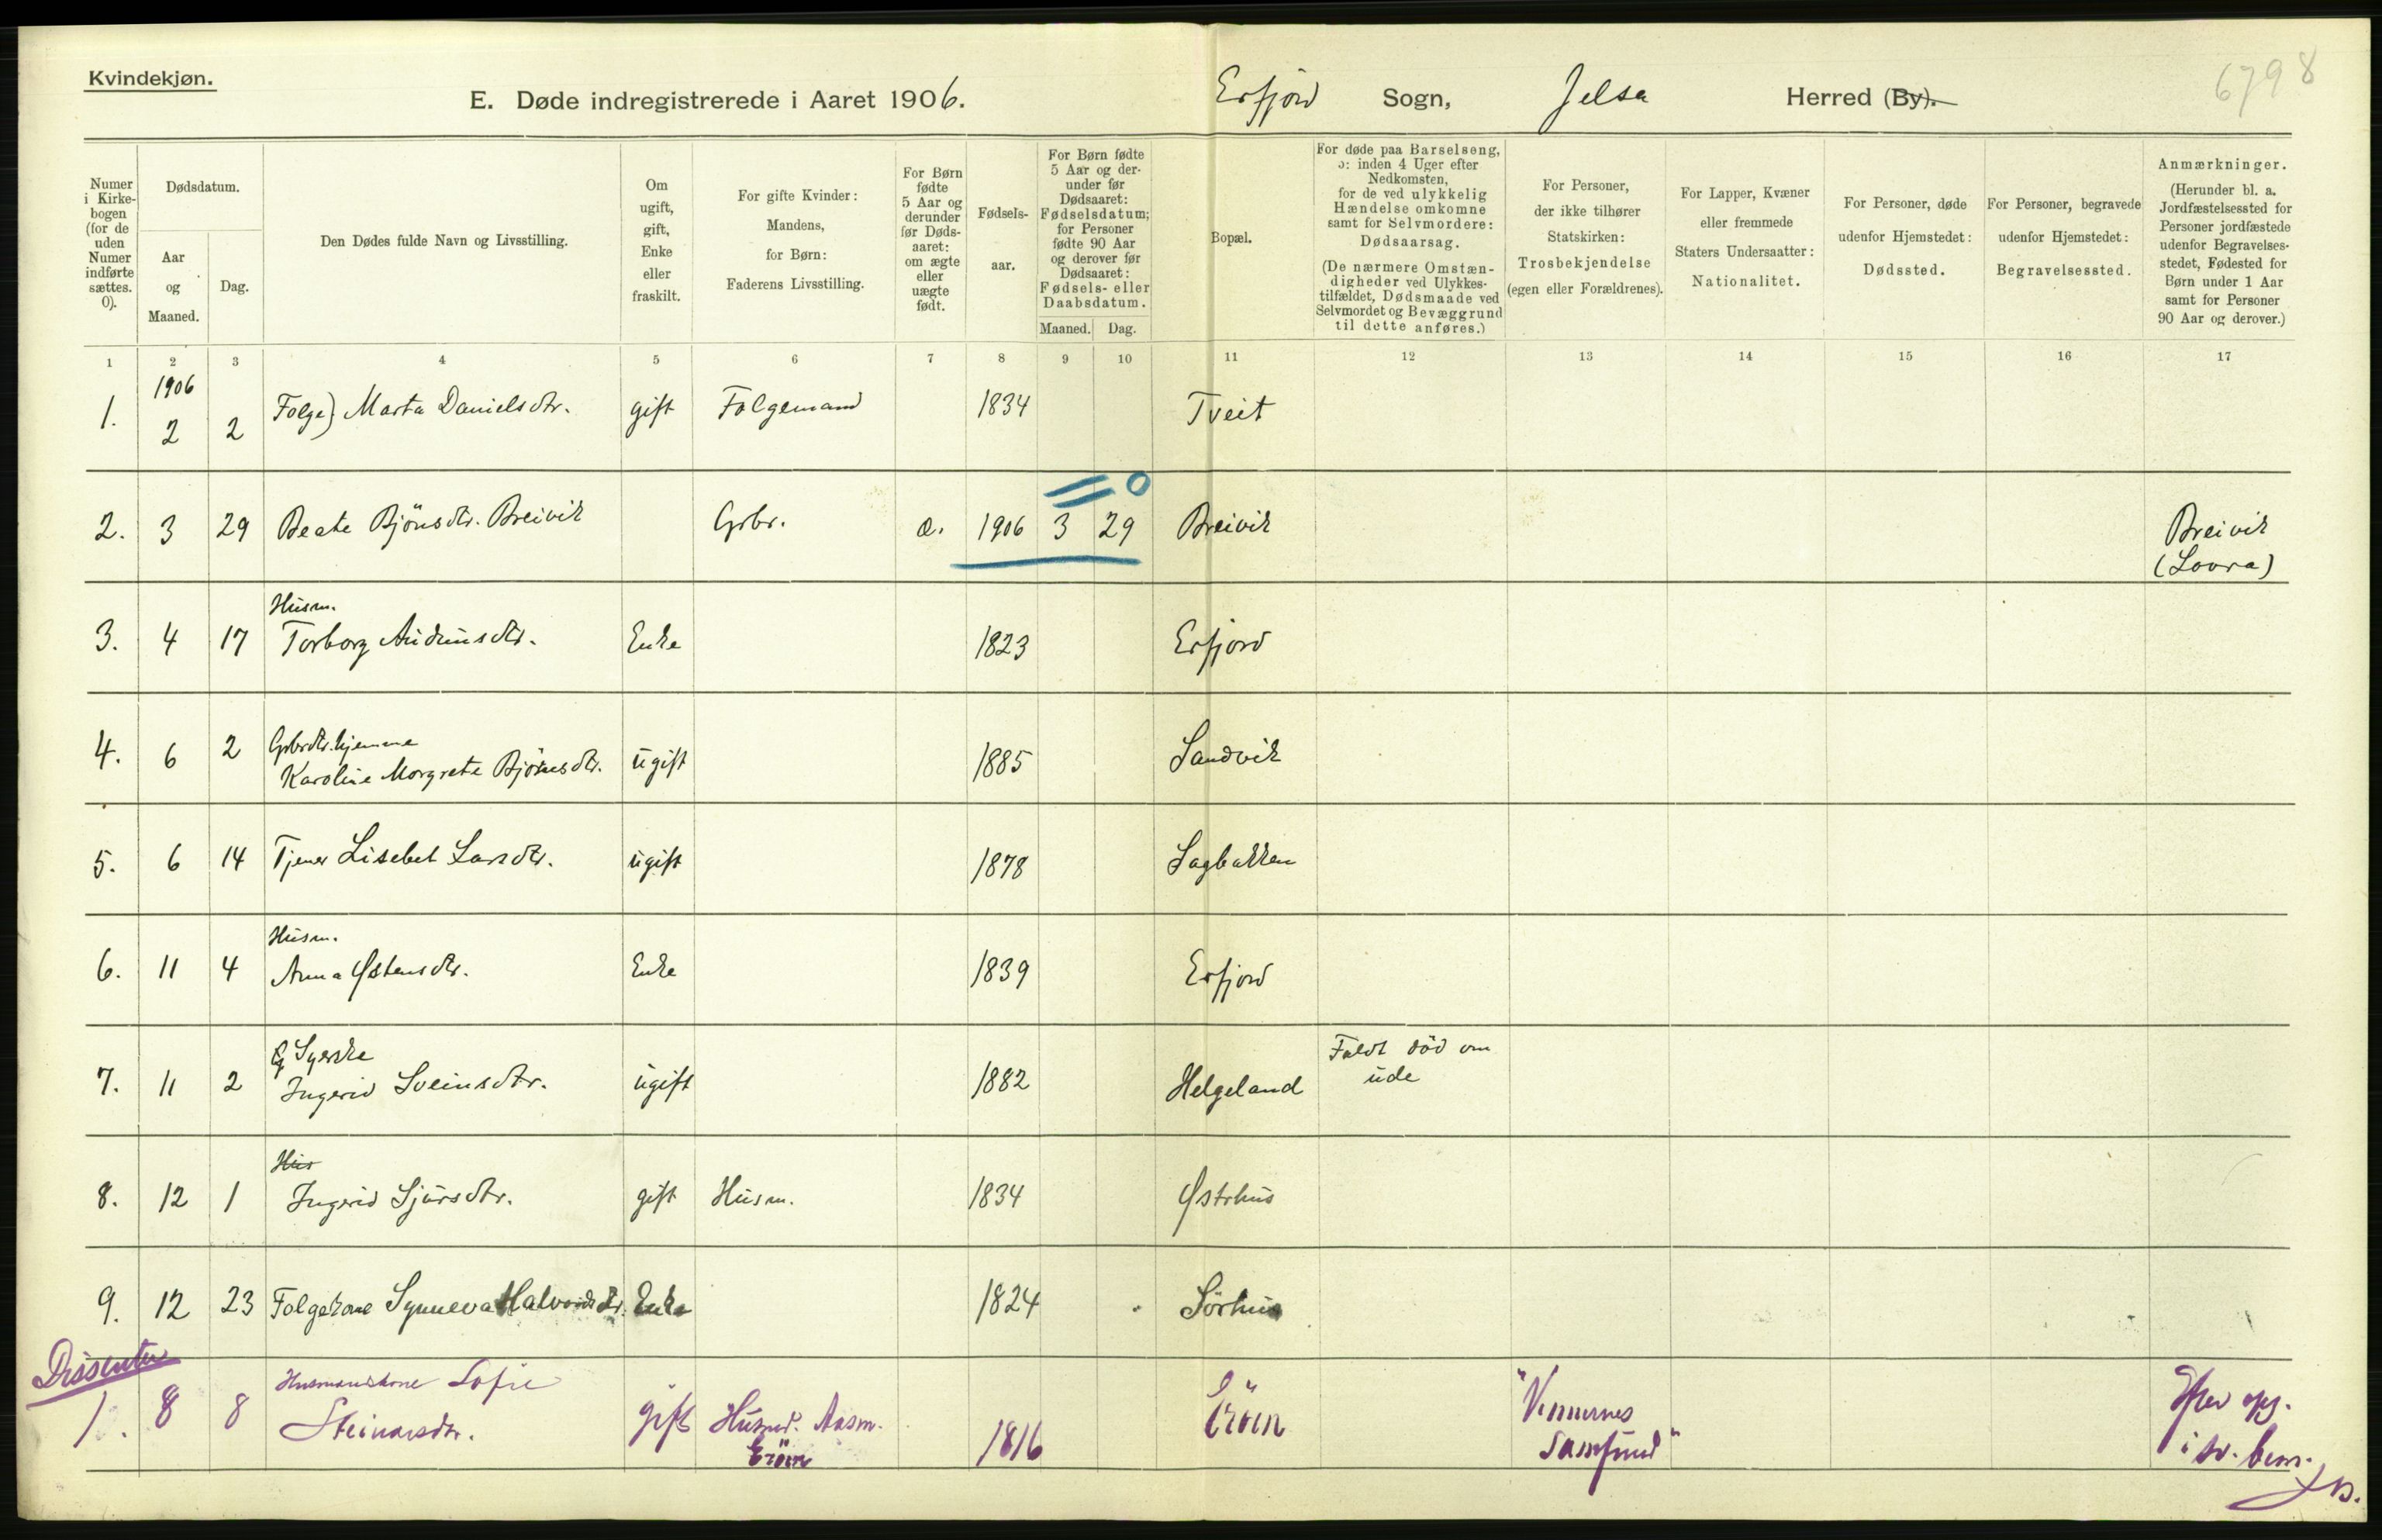 Kvindekjøn.
E. Døde indregistrerede i Aaret 1906.
Erfjord Sogn, Jelsa Herred (By).
6798
Numer i Kirkebogen (for de uden Numer indførte sættes. 0).
Dødsdatum.
Aar og Maaned.
Dag.
Den Dødes fulde Navn og Livsstilling.
Om ugift, gift, Enke eller fraskilt.
For gifte Kvinder: Mandens, for Børn: Faderens Livsstilling.
For Børn fødte 5 Aar og derunder før Dødsaaret: om ægte eller uægte født.
Fødselsaar.
For Børn fødte 5 Aar og derunder før Dødsaaret: Fødselsdatum; for Personer fødte 90 Aar og derover før Dødsaaret: Fødsels- eller Daabsdatum.
Maaned. Dag.
Bopæl.
For døde paa Barselseng, ɔ: inden 4 Uger efter Nedkomsten, for de ved ulykkelig Hændelse omkomne samt for Selvmordere: Dødsaarsag.
(De nærmere Omstændigheder ved Ulykkestilfældet, Dødsmaade ved Selvmordet og Bevæggrund til dette anføres.)
For Personer, der ikke tilhører Statskirken: Trosbekjendelse (egen eller Forældrenes).
For Lapper, Kvæner eller fremmede Staters Undersaatter: Nationalitet.
For Personer, døde udenfor Hjemstedet: Dødssted.
For Personer, begravede udenfor Hjemstedet: Begravelsessted.
Anmærkninger.
(Herunder bl. a. Jordfæstelsessted for Personer jordfæstede udenfor Begravelsesstedet, Fødested for Børn under 1 Aar samt for Personer 90 Aar og derover.)
1 2 3 4 5 6 7 8 9 10 11 12 13 14 15 16 17
1906
1. 2 2 Folge) Marta Danielsdtr. gift Folgemand 1834 Tveit
0
2. 3 29 Beate Bjönsdtr. Breivik Grbr. æ. 1906 3 29 Breivik Breivik
(Lovra)
Husm.
3. 4 17 Torborg Audunsdtr. Enke 1823 Erfjord
Grbrdtr. hjemme
4. 6 2 Karoline Morgrete Bjönsdtr. ugift 1885 Sandvik
5. 6 14 Tjener Lisebet Larsdtr. ugift 1878 Sagbakken
Husm.
6. 11 4 Anna Østensdtr. Enke 1839 Erfjord
Syerske
7. 11 2 Ingerid Sveinsdtr. ugift 1882 Helgeland Faldt död om
ude
Hus
8. 12 1 Ingerid Sjursdtr. gift Husm. 1834 Østrhus
9. 12 23 Folgekone Synneva Halvordsdtr. Enke 1824 Sörhus
Dissenter
Husmandskone Sofie
1. 8 8 Steinarsdtr. gift Husmd. Aasm.
Eröen 1816 Eröen "Vennernes
Samfund"
Efter opg.
i sv. bem.